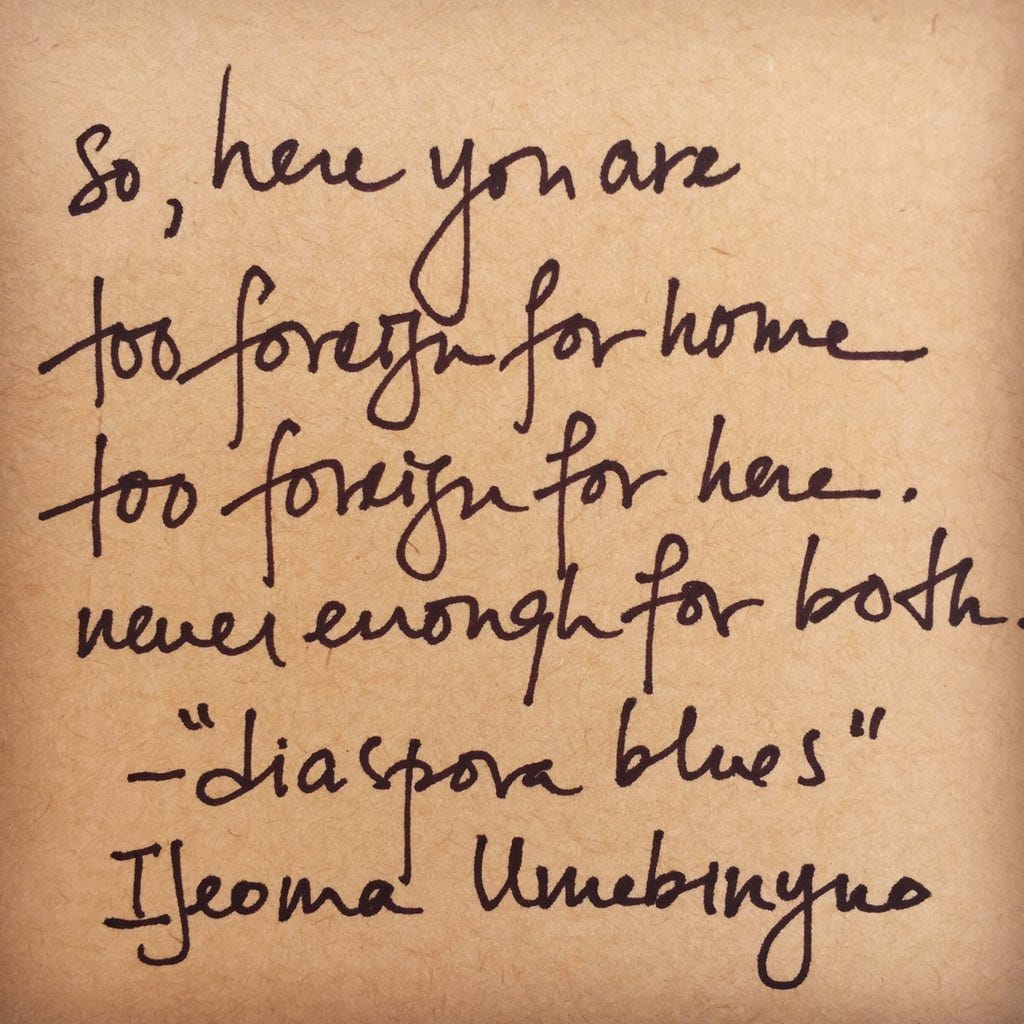 so, here you are
too foreign for home
too foreign for here.
never enough for both.
-"diaspora blues"
Ijeoma Umebinyuo